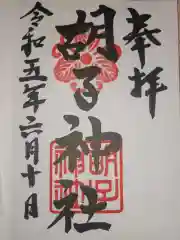 奉拝
胡子神社
令和五年六月十日